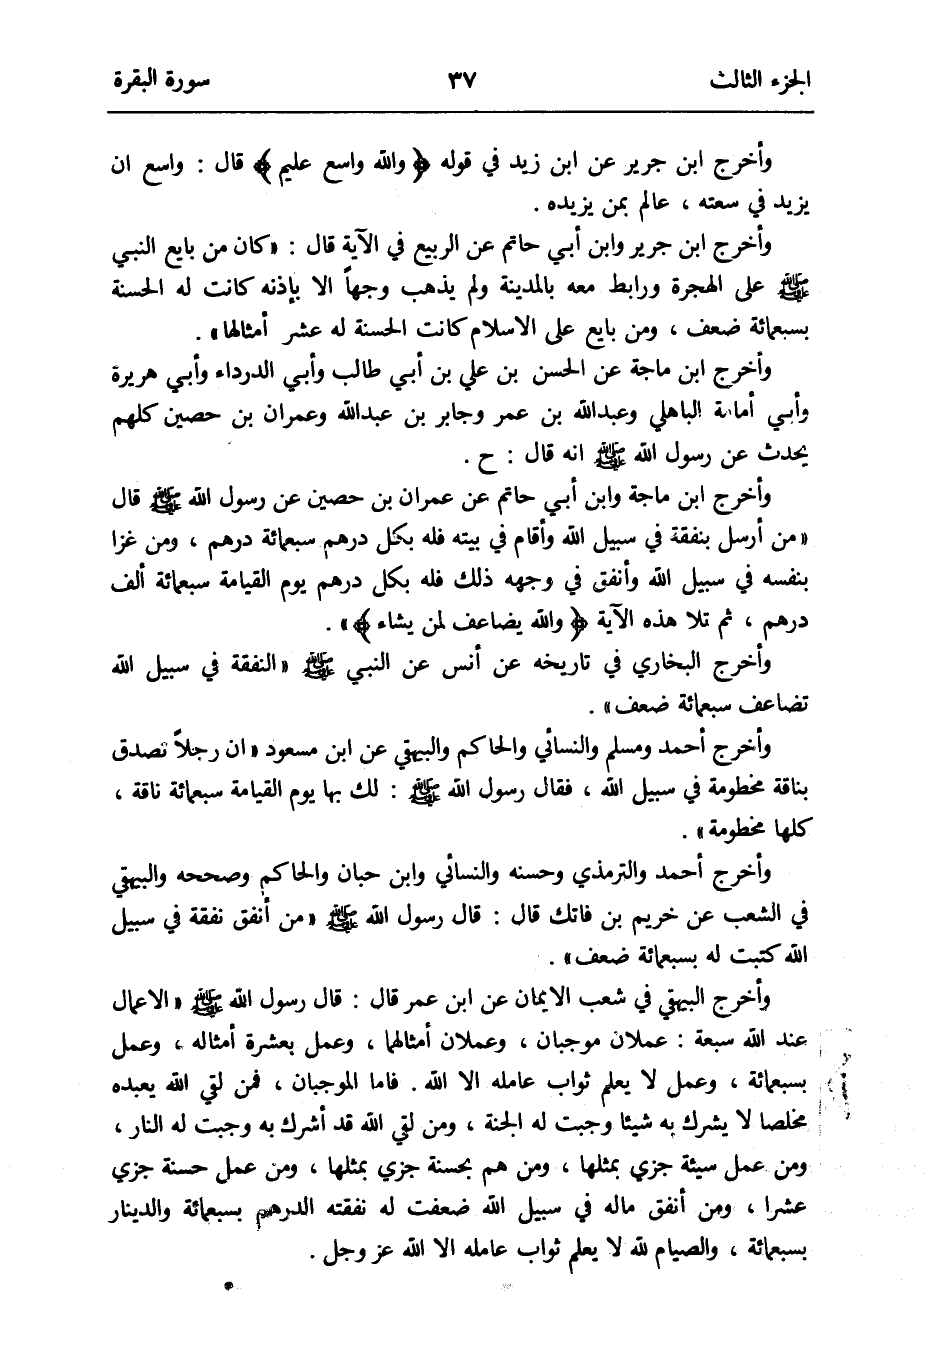 الجزء الثالث ٣٧ سورة البقرة
وأخرج ابن جرير عن ابن زيد في قوله ﴿ والله واسع عليم ﴾ قال : واسع ان
يزيد في سعته ، عالم بمن يزيده .
وأخرج ابن جرير وابن أبي حاتم عن الربيع في الآية قال : « كان من بايع النبي
ﷺ على الهجرة ورابط معه بالمدينة ولم يذهب وجهاً الا بإذنه كانت له الحسنة
بسبعمائة ضعف ، ومن بايع على الاسلام كانت الحسنة له عشر أمثالها » .
وأخرج ابن ماجة عن الحسن بن علي بن أبي طالب وأبي الدرداء وأبي هريرة
وأبي أمامة الباهلي وعبدالله بن عمر وجابر بن عبدالله وعمران بن حصين كلهم
يحدث عن رسول الله ﷺ انه قال : ح .
وأخرج ابن ماجة وابن أبي حاتم عن عمران بن حصين عن رسول الله ﷺ قال
« من أرسل بنفقة في سبيل الله وأقام في بيته فله بكل درهم سبعمائة درهم ، ومن غزا
بنفسه في سبيل الله وأنفق في وجهه ذلك فله بكل درهم يوم القيامة سبعمائة ألف
درهم ، ثم تلا هذه الآية ﴿ والله يضاعف لمن يشاء ﴾ » .
وأخرج البخاري في تاريخه عن أنس عن النبي ﷺ « النفقة في سبيل الله
تضاعف سبعمائة ضعف » .
وأخرج أحمد ومسلم والنسائي والحاكم والبيهقي عن ابن مسعود « ان رجلاً تصدق
بناقة مخطومة في سبيل الله ، فقال رسول الله ﷺ : لك بها يوم القيامة سبعمائة ناقة ،
كلها مخطومة » .
وأخرج أحمد والترمذي وحسنه والنسائي وابن حبان والحاكم وصححه والبيهقي
في الشعب عن خريم بن فاتك قال : قال رسول الله ﷺ « من أنفق نفقة في سبيل
الله كتبت له بسبعمائة ضعف » .
وأخرج البيهقي في شعب الايمان عن ابن عمر قال : قال رسول الله ﷺ « الاعمال
عند الله سبعة : عملان موجبان ، وعملان أمثالها ، وعمل بعشرة أمثاله ، وعمل
بسبعمائة ، وعمل لا يعلم ثواب عامله الا الله . فاما الموجبان ، فمن لقي الله يعبده
مخلصا لا يشرك به شيئا وجبت له الجنة ، ومن لقي الله قد أشرك به وجبت له النار ،
ومن عمل سيئة جزي بمثلها ، ومن هم بحسنة جزي بمثلها ، ومن عمل حسنة جزي
عشرا ، ومن أنفق ماله في سبيل الله ضعفت له نفقته الدرهم بسبعمائة والدينار
بسبعمائة ، والصيام لله لا يعلم ثواب عامله الا الله عز وجل .